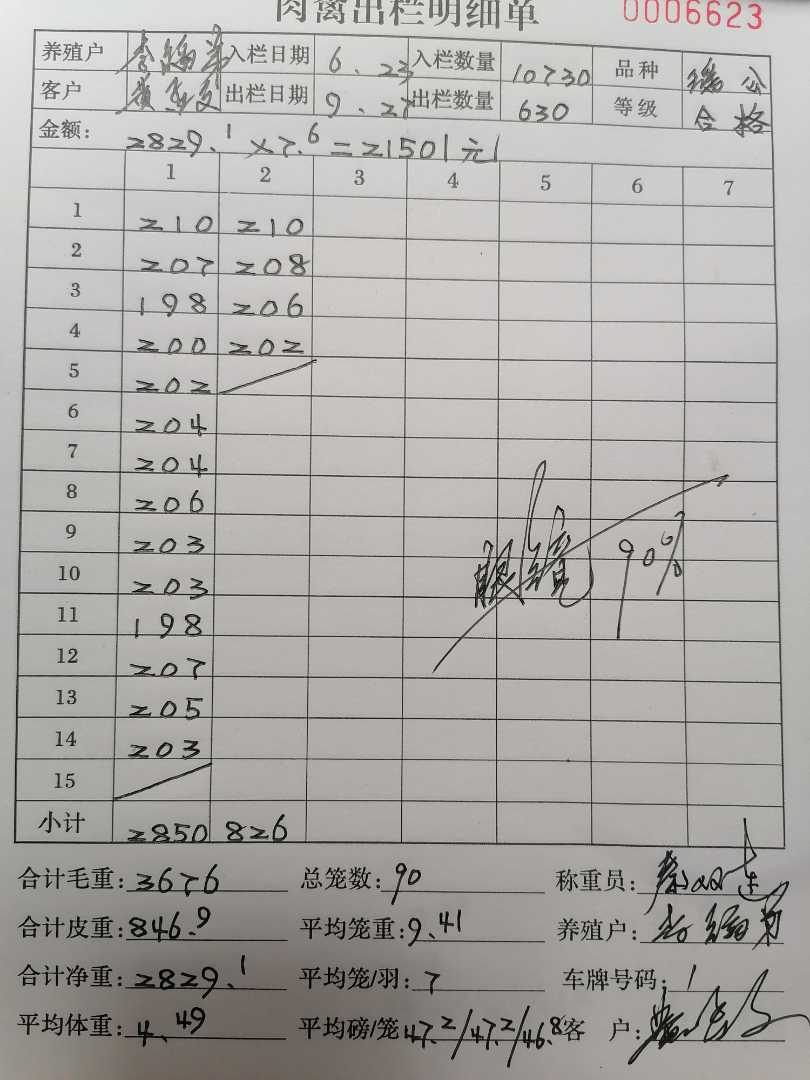 肉禽出栏明细单 0006623
养殖户 入栏日期 6.23 入栏数量 10730 品种 公
客户 出栏日期 9.27 出栏数量 630 等级 合格
金额: 2829.1×7.6=21501元
1 2 3 4 5 6 7
1 210 210
2 207 208
3 198 206
4 200 202
5 202
6 204
7 204
8 206
9 203
10 203
11 198
12 207
13 205
14 203
15
90%
小计 2850 826
合计毛重: 3676 总笼数: 90 称重员:
合计皮重: 846.9 平均笼重: 9.41 养殖户:
合计净重: 2829.1 平均笼/羽: 7 车牌号码: 1
平均体重: 4.49 平均磅/笼 47.2/47.2/46.8 客 户: